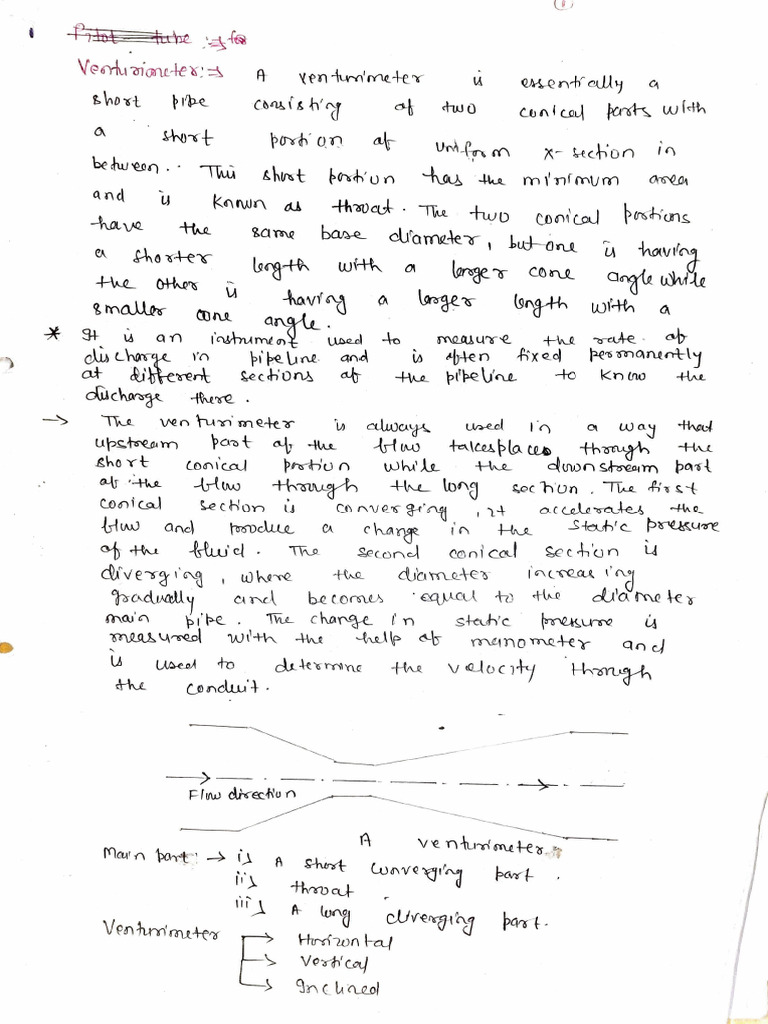 1
Pitot tube :⇒ for
Venturimeter:⇒ A venturimeter is essentially a
short pipe consisting of two conical parts with
a short portion of uniform x-section in
between. This short portion has the minimum area
and is known as throat. The two conical portions
have the same base diameter, but one is having
a shorter length with a larger cone angle while
the other is having a larger length with a
smaller cone angle.
* It is an instrument used to measure the rate of
discharge in pipeline and is often fixed permanently
at different sections of the pipeline to know the
discharge there.
→ The venturimeter is always used in a way that
upstream part of the flow takesplaces through the
short conical portion while the downstream part
of the flow through the long section. The first
conical section is converging, it accelerates the
flow and produce a change in the static pressure
of the fluid. The second conical section is
diverging, where the diameter increasing
gradually and becomes equal to the diameter
main pipe. The change in static pressure is
measured with the help of manometer and
is used to determine the velocity through
the conduit.
Flow direction
A venturimeter
Main part: → i> A short converging part.
ii> throat
iii> A long diverging part.
Venturimeter → Horizontal
→ Vertical
→ Inclined